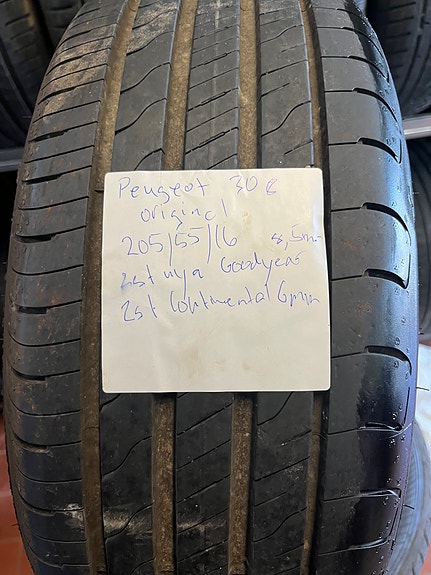 Peugeot 308
original
205/55/16 8,5mm
2st nya Goodyear
2st Continental 6mm